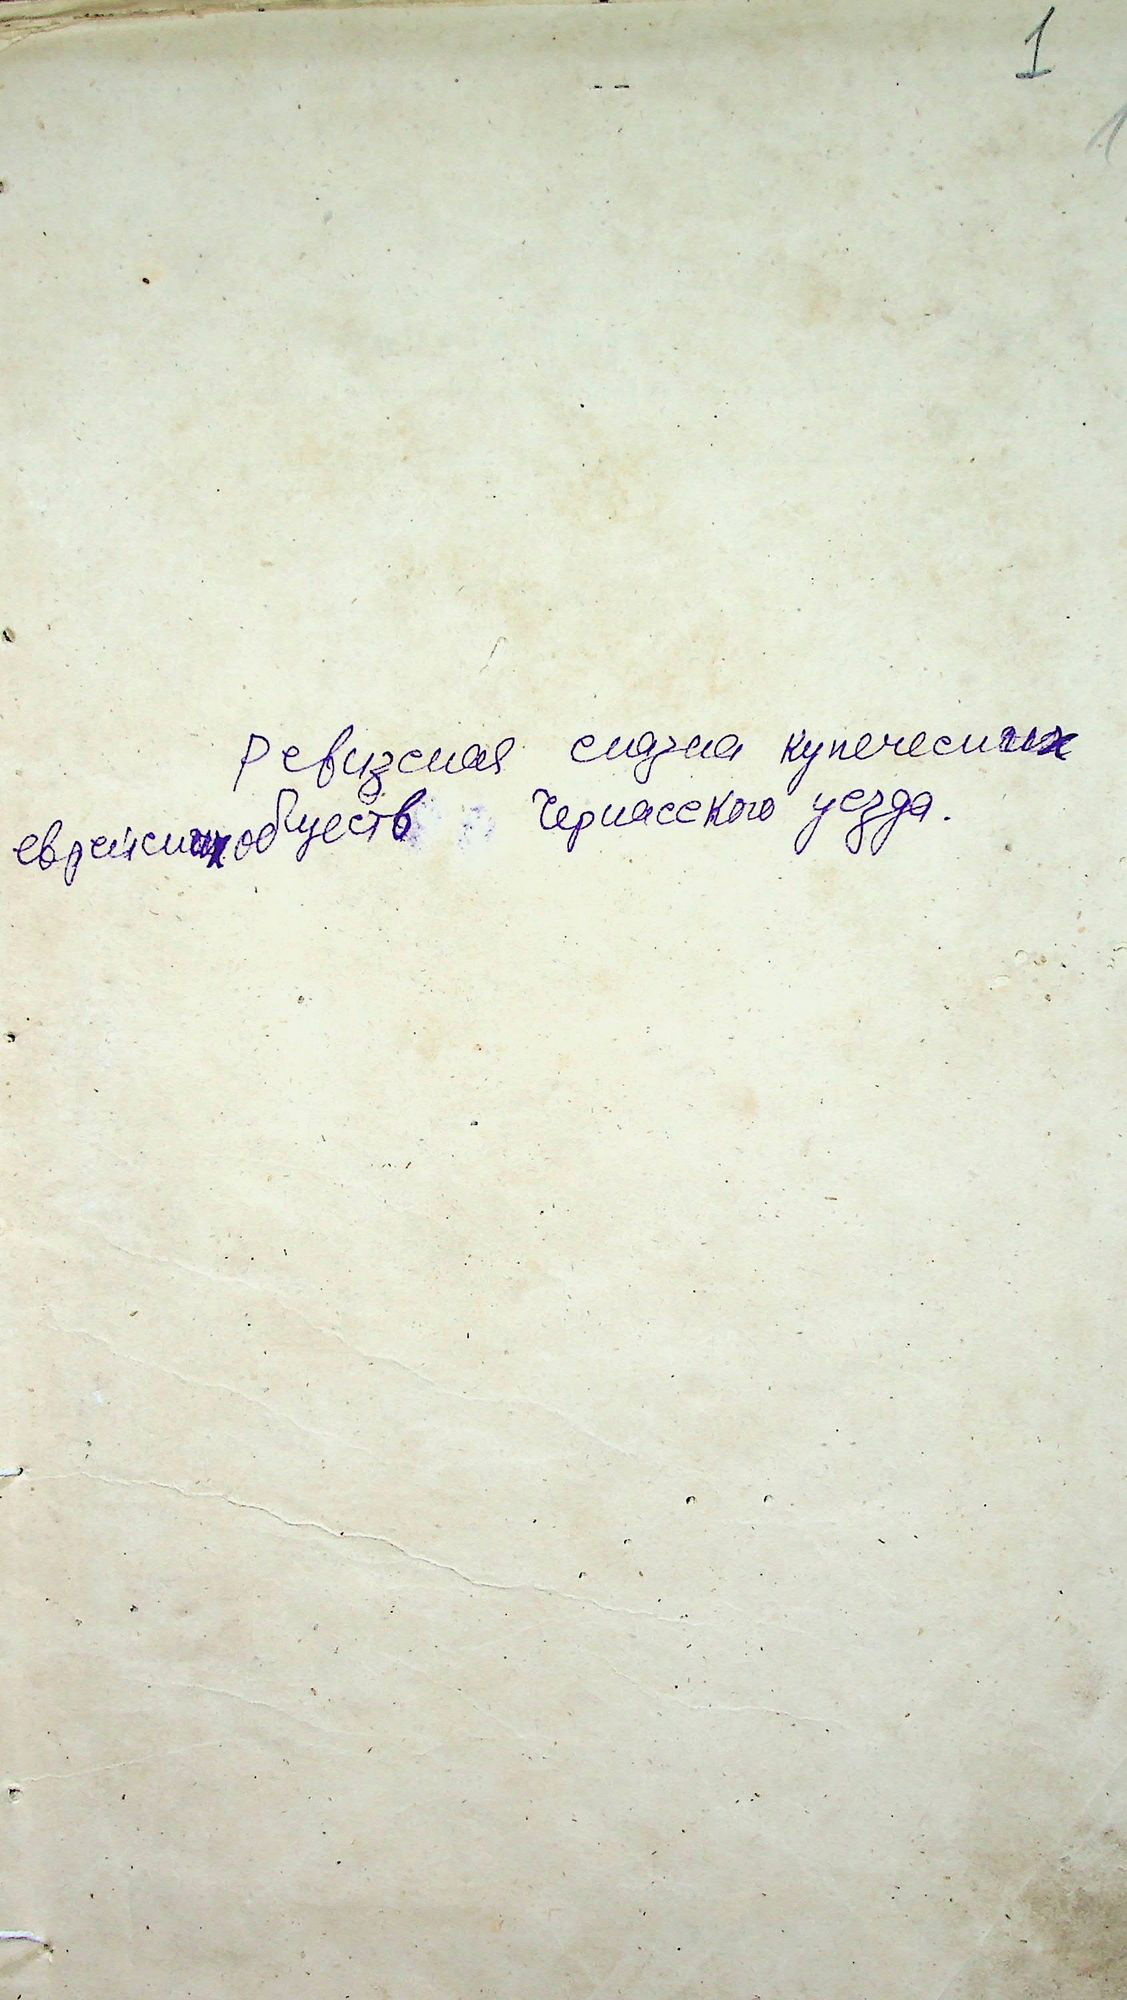 1
1
Ревизская сказка купеческих
еврейских обществ Черкасского уезда.